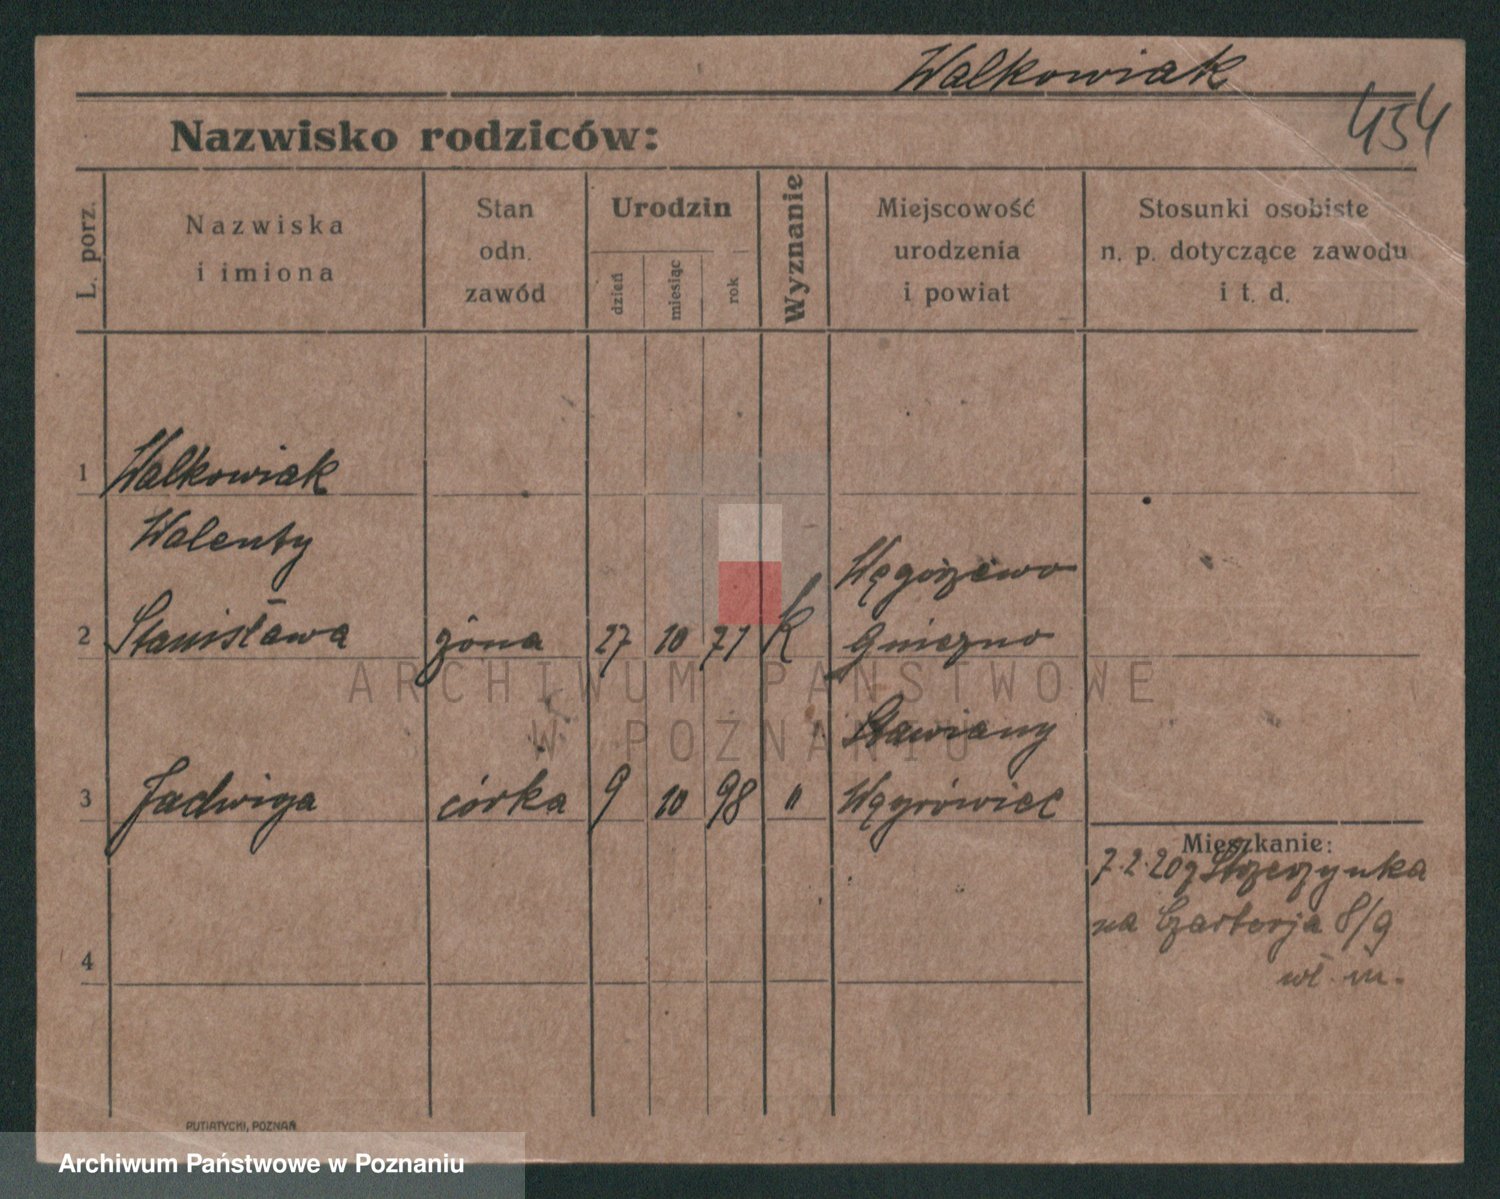 Walkowiak
454
Nazwisko rodziców:
L. porz.
Nazwiska
i imiona
Stan
odn.
zawód
Urodzin
dzień
miesiąc
rok
Wyznanie
Miejscowość
urodzenia
i powiat
Stosunki osobiste
n. p. dotyczące zawodu
i t. d.
1 Walkowiak
Walenty
Węgorzewo
2 Stanisława żona 27 10 71 K Gniezno
ARCHIWUM PAŃSTWOWE
W POZNANIU
Stawiany
3 Jadwiga córka 9 10 98 " Wągrówiec
Mieszkanie:
7.2.20 z Strzeszynka
na Czartorja 8/9
wł. m.
4
PUTIATYCKI, POZNAŃ
Archiwum Państwowe w Poznaniu